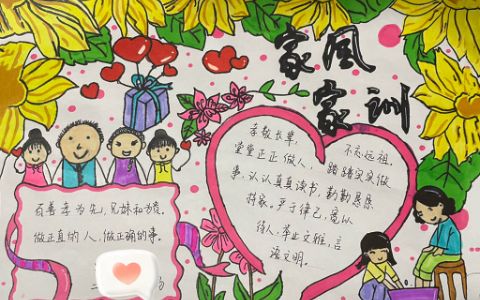 家风
家训
孝敬长辈， 不忘远祖，
堂堂正正做人， 踏踏实实做
事，认认真真读书，勤勤恳恳
持家。严于律己，宽以
待人，举止文雅，言
语文明。
百善孝为先，兄妹和为贵，
做正直的人，做正确的事。